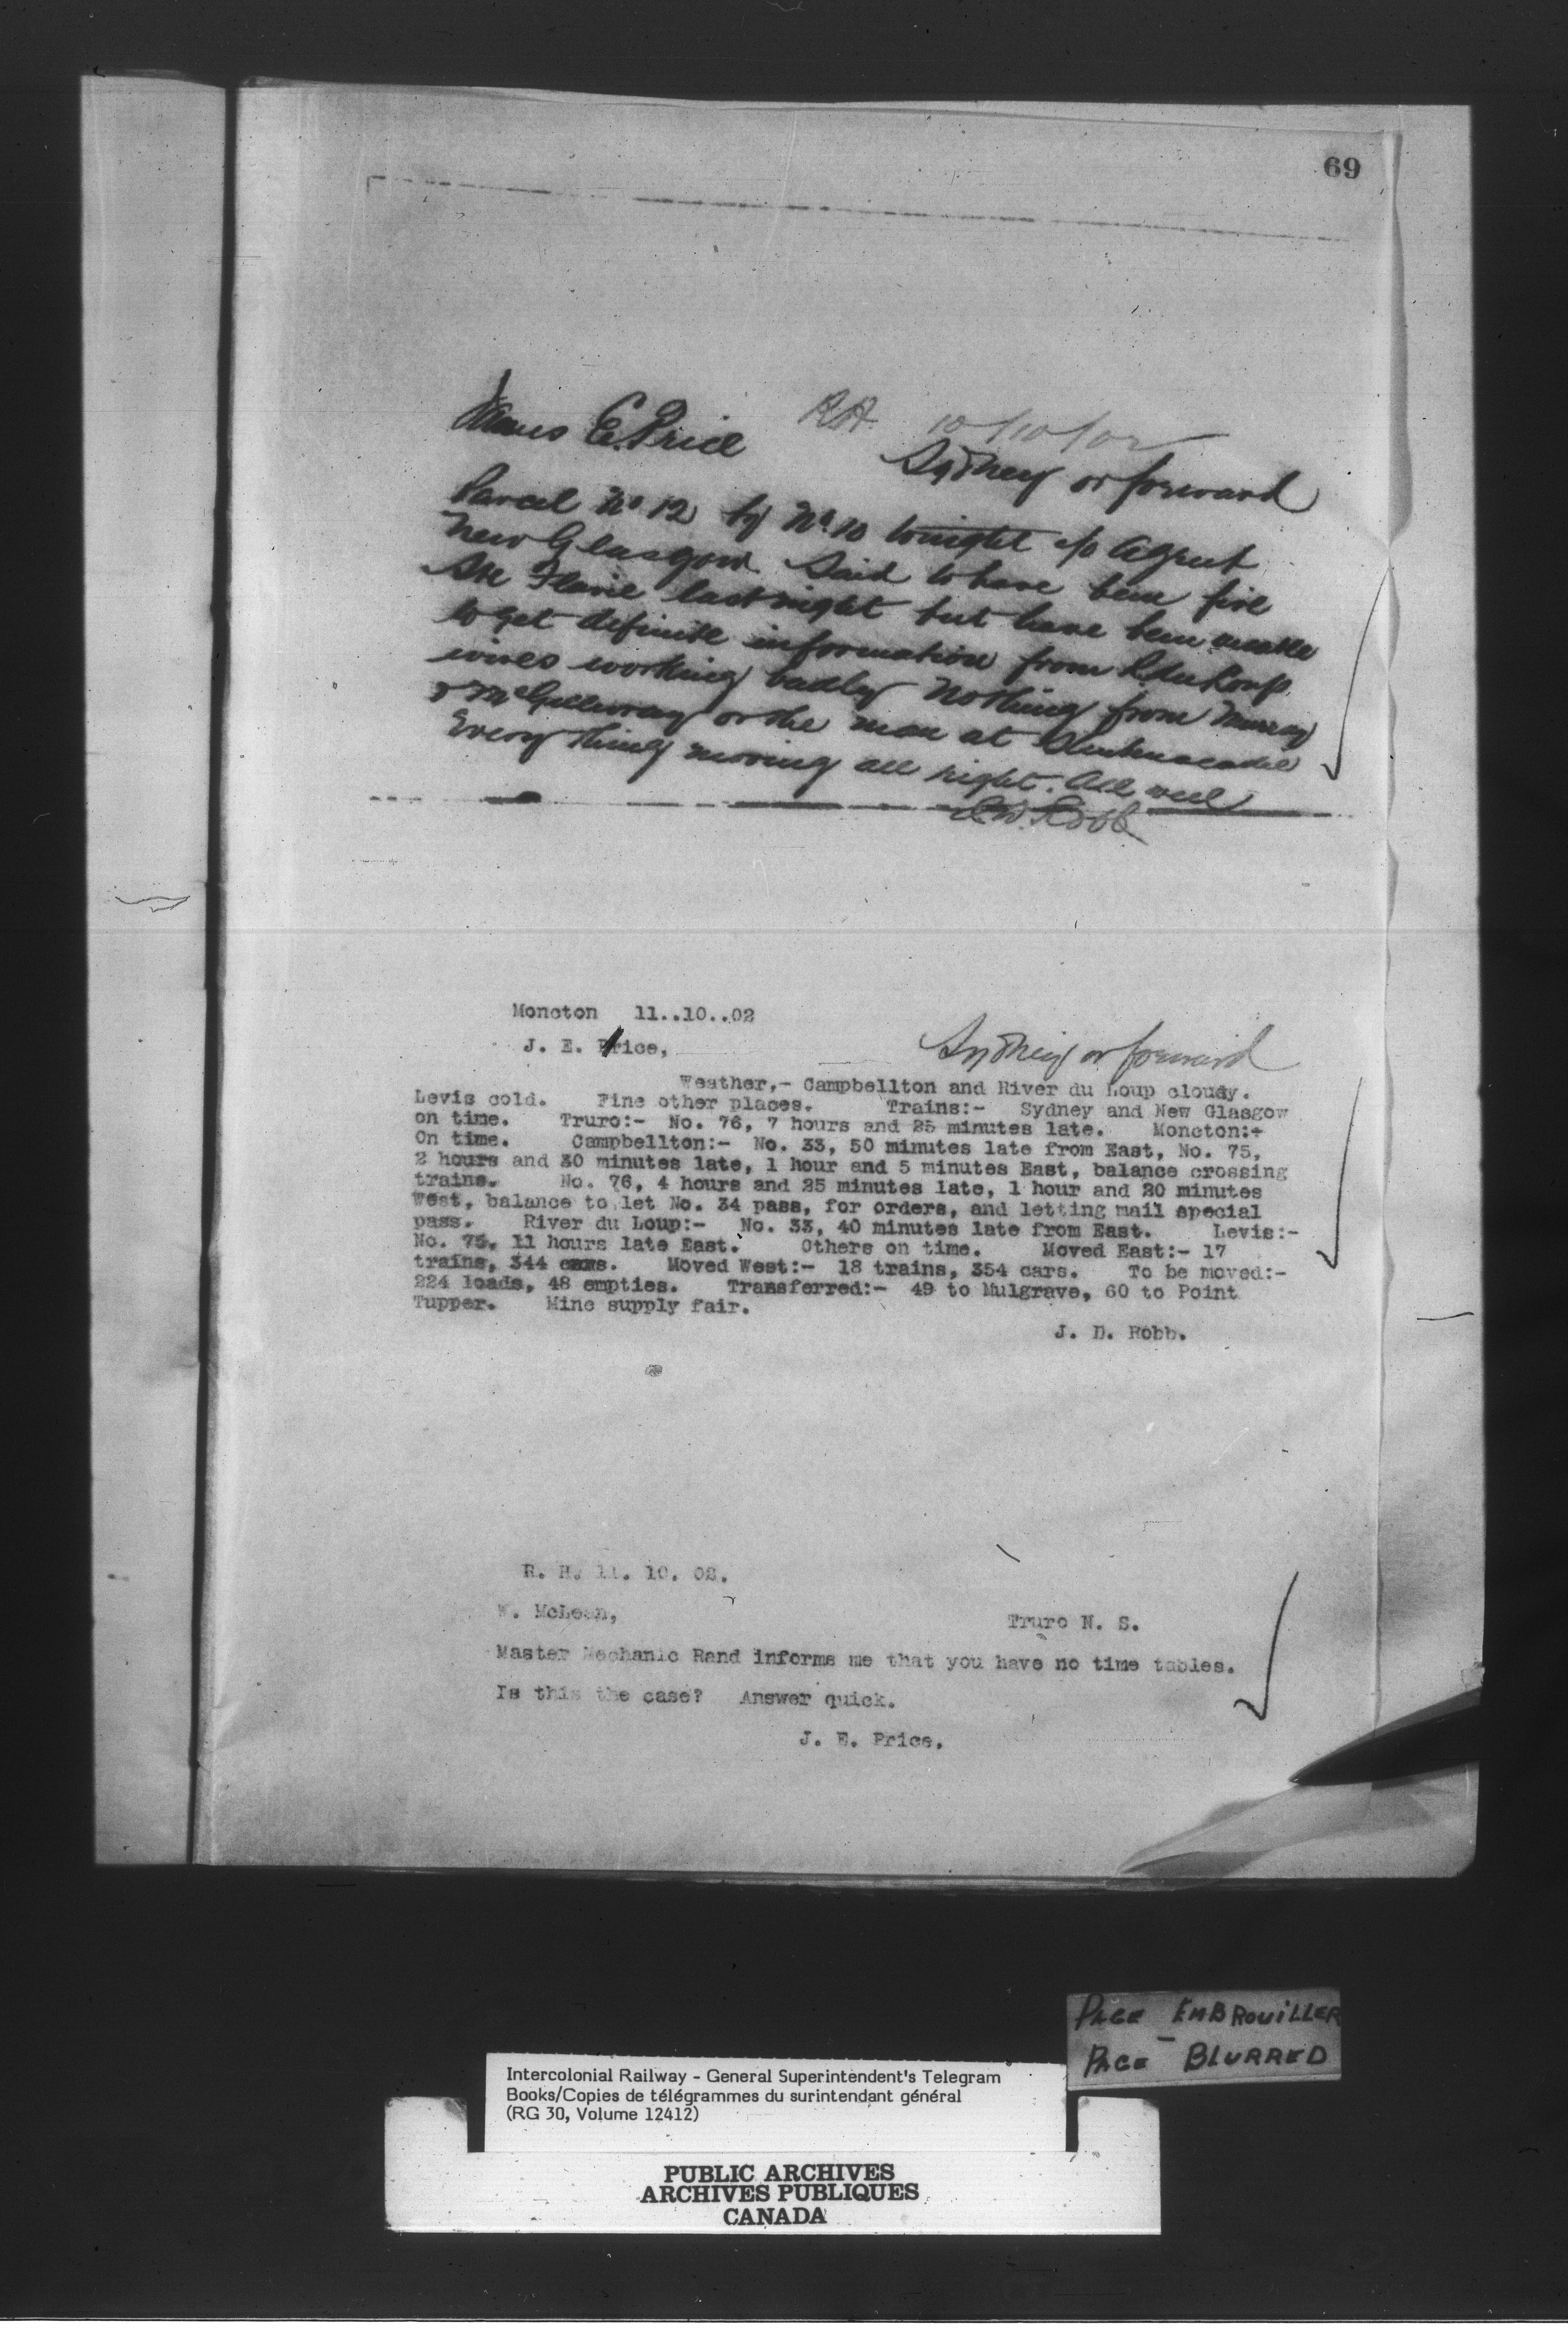 69
RH 10/10/02
James E. Price
Sydney or forward
Parcel No 12 by No 10 tonight c/o Agent
New Glasgow. Said to have been fire
Ste Flavie last night but have been unable
to get definite information from R du Loup
wires working badly Nothing from Murray
& McGillivray or the man at Shubenacadie
Everything moving all right. All well
Robb
Moncton 11..10..02
J. E. Price,
Sydney or forward
Weather,- Campbellton and River du Loup cloudy.
Levis cold. Fine other places. Trains:- Sydney and New Glasgow
on time. Truro:- No. 76, 7 hours and 25 minutes late. Moncton:-
On time. Campbellton:- No. 33, 50 minutes late from East, No. 75,
2 hours and 30 minutes late, 1 hour and 5 minutes East, balance crossing
trains. No. 76, 4 hours and 25 minutes late, 1 hour and 20 minutes
West, balance to let No. 34 pass, for orders, and letting mail special
pass. River du Loup:- No. 33, 40 minutes late from East. Levis:-
No. 75, 11 hours late East. Others on time. Moved East:- 17
trains, 344 cars. Moved West:- 18 trains, 354 cars. To be moved:-
224 loads, 48 empties. Transferred:- 49 to Mulgrave, 60 to Point
Tupper. Mine supply fair.
J. D. Robb.
R. H. 11. 10. 02.
W. McLean,
Truro N. S.
Master Mechanic Rand informs me that you have no time tables.
Is this the case? Answer quick.
J. E. Price.
PAGE EMBROUILLER
PAGE - BLURRED
Intercolonial Railway - General Superintendent's Telegram
Books/Copies de télégrammes du surintendant général
(RG 30, Volume 12412)
PUBLIC ARCHIVES
ARCHIVES PUBLIQUES
CANADA